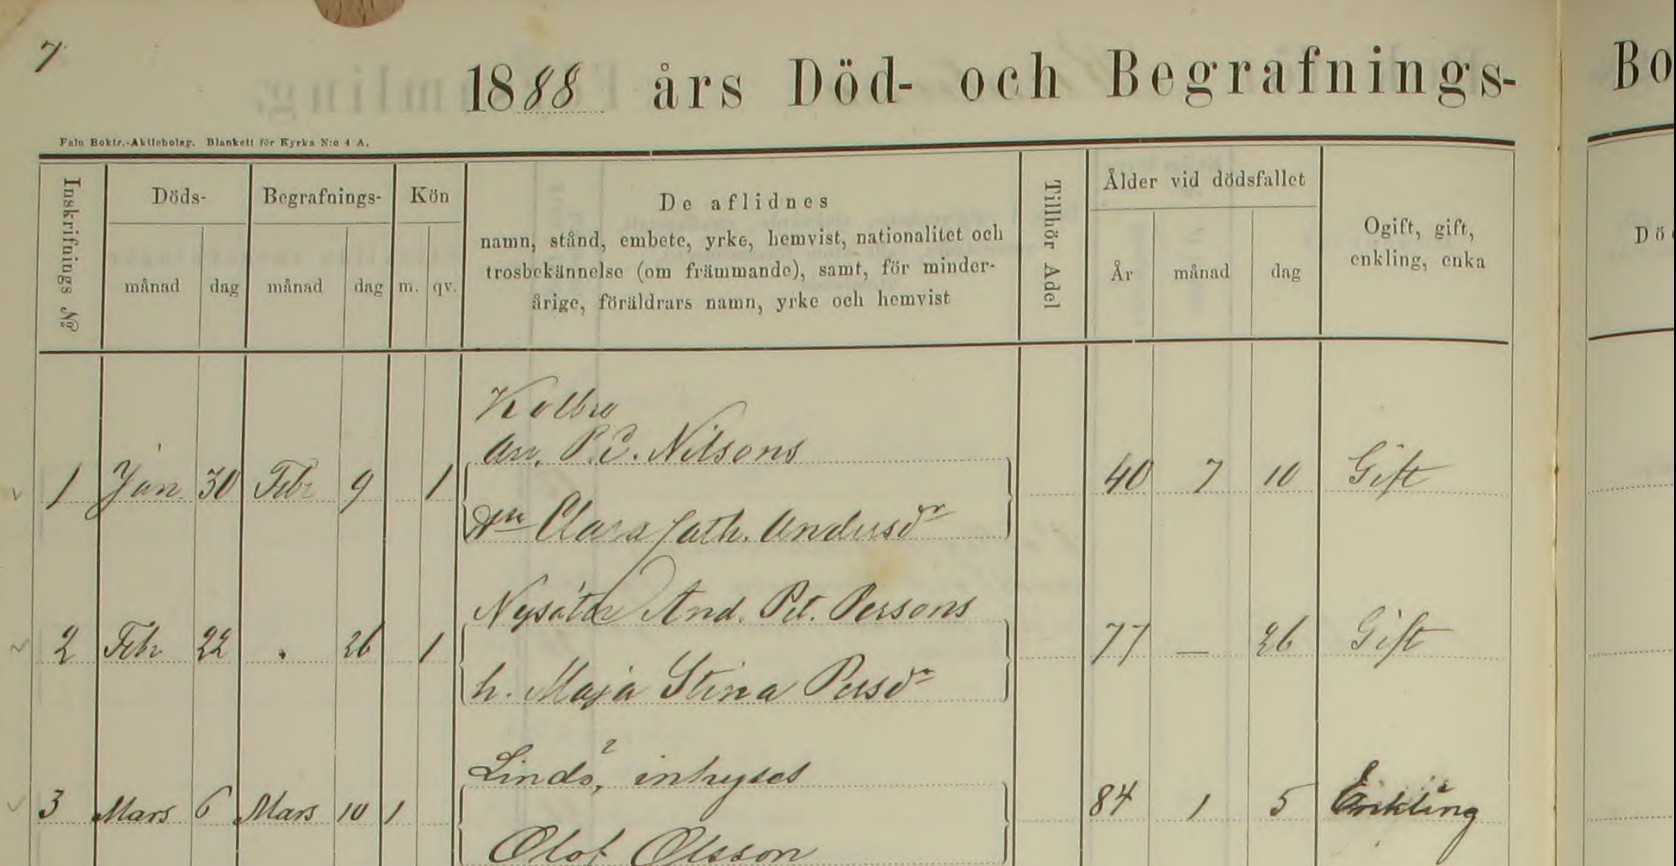 7
1888 års Död- och Begrafnings-
Bo
Falu Boktr.-Aktiebolag. Blankett för Kyrka N:o 4 A.
Inskrifnings №
Döds-
månad
dag
Begrafnings-
månad
dag
Kön
m.
qv.
De aflidnes
namn, stånd, embete, yrke, hemvist, nationalitet och
trosbekännelse (om främmande), samt, för minder-
årige, föräldrars namn, yrke och hemvist
Tillhör Adel
Ålder vid dödsfallet
År
månad
dag
Ogift, gift,
enkling, enka
Dö
Kolbro
Arr. P. E. Nilsons
1 Jan 30 Febr 9 1 40 7 10 Gift
Clara Cath. Andersdr
Nysäter And. Pet. Persons
2 Febr 22 " 26 1 77 — 26 Gift
h. Maja Stina Persdr
Lindö, inhyses
3 Mars 6 Mars 10 1 84 1 5 Enkling
Olof Olsson